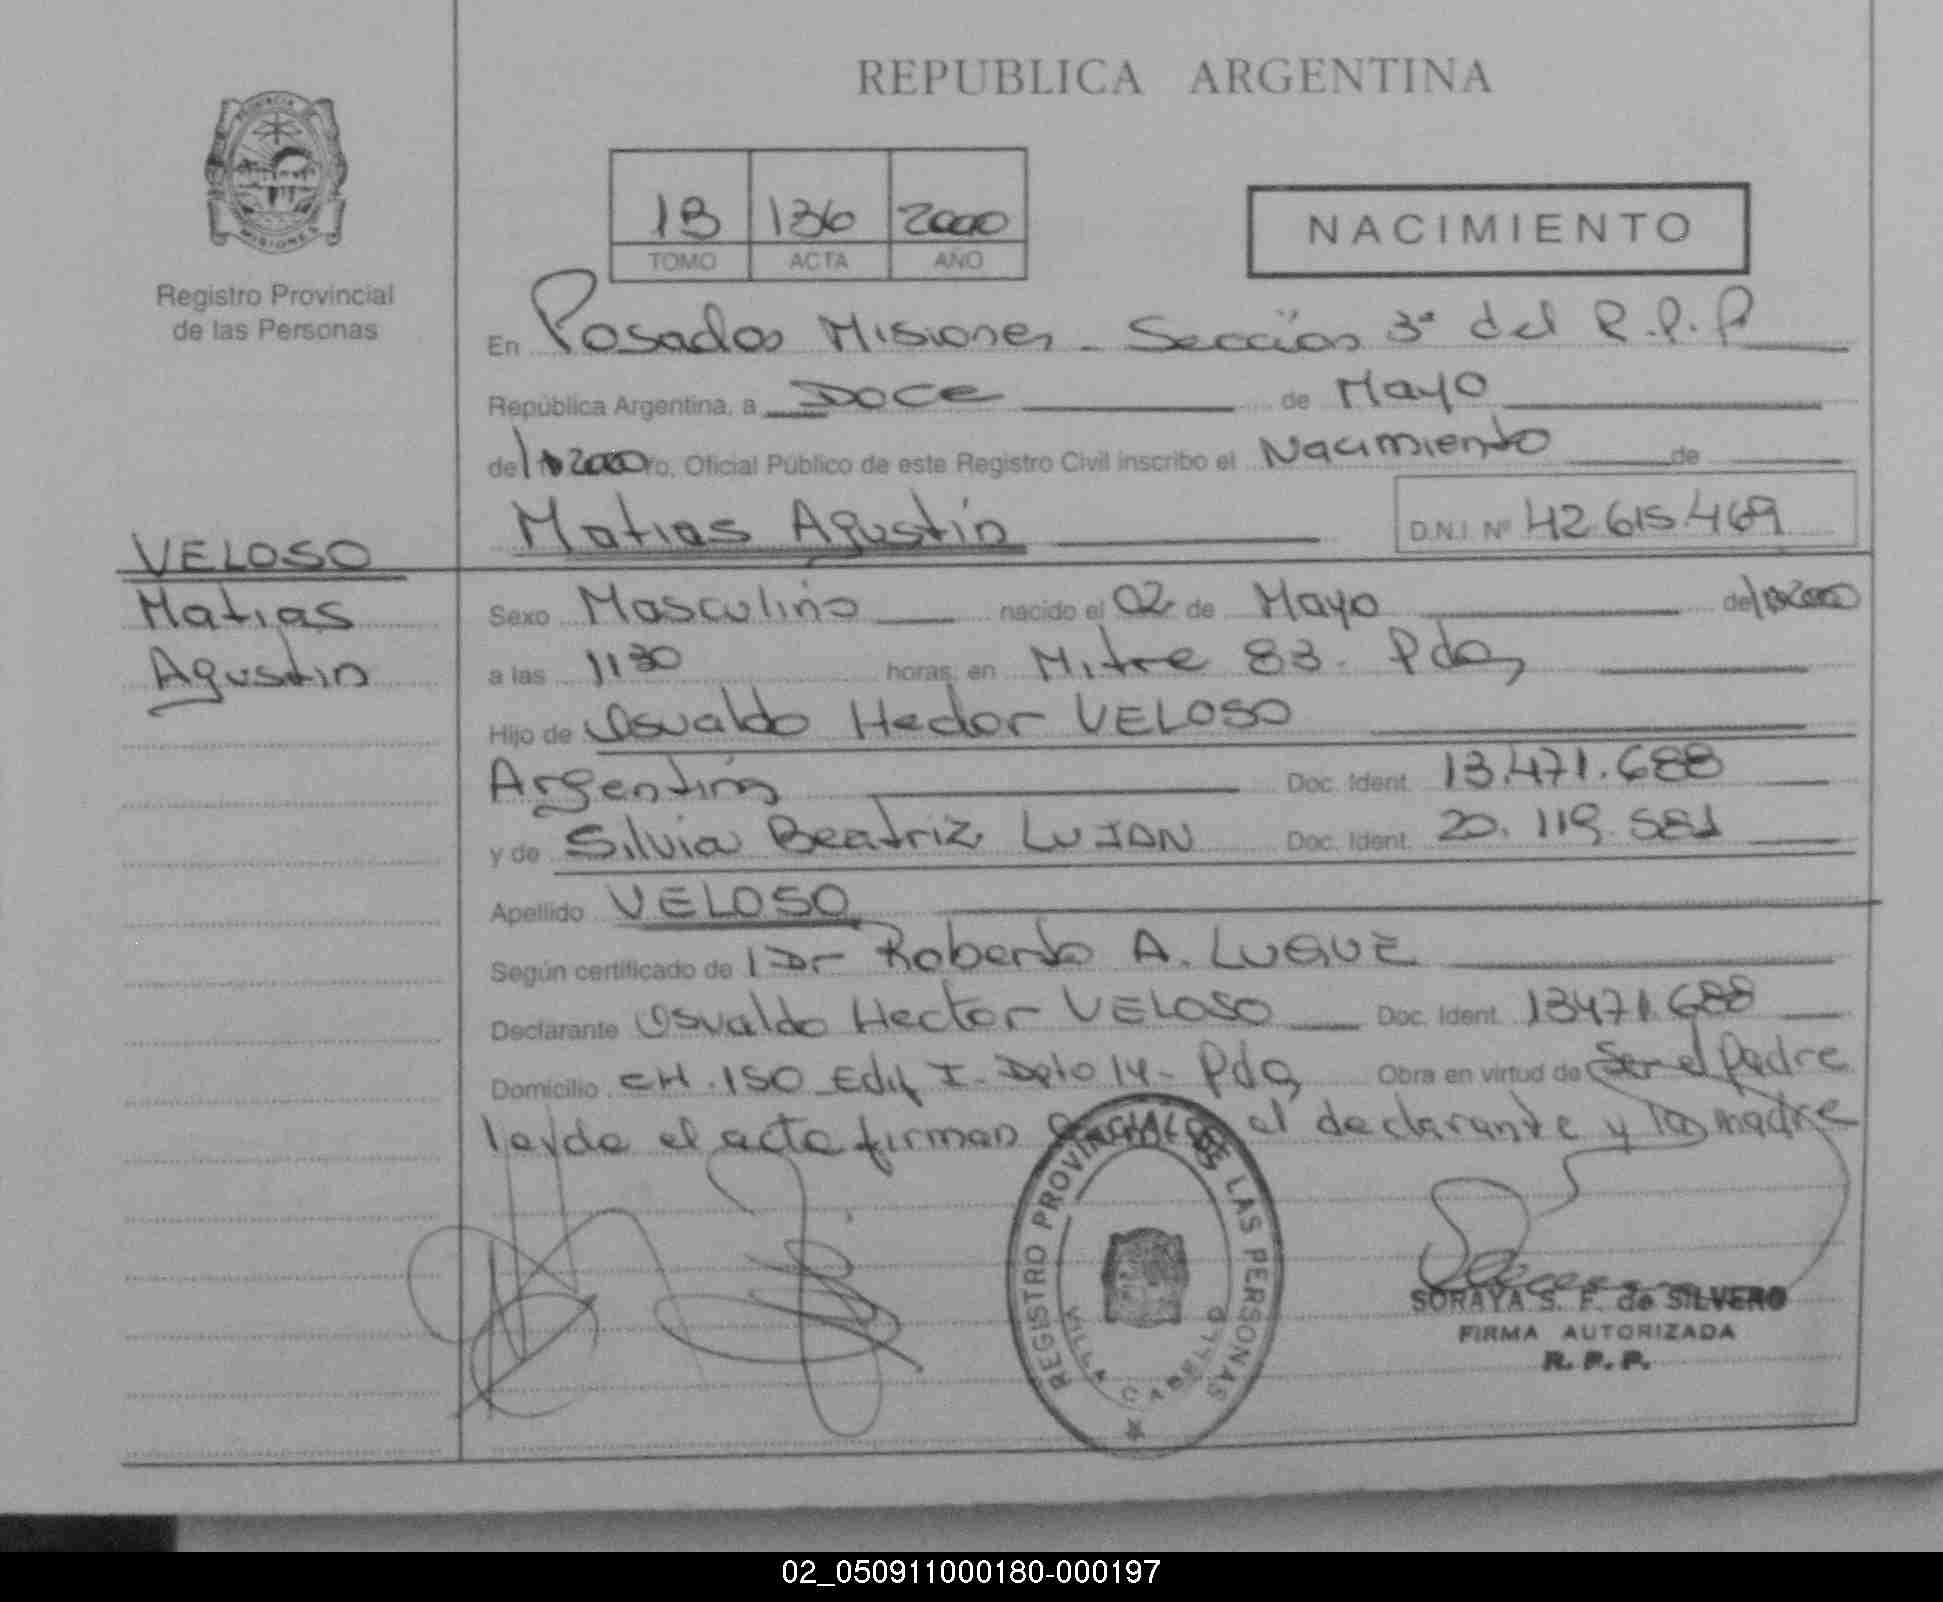 REPUBLICA ARGENTINA
PROVINCIA
MISIONES
Registro Provincial
de las Personas
1B 136 2000
TOMO ACTA AÑO
NACIMIENTO
En Posadas Misiones - Sección 3ª del R.P.P
República Argentina, a Doce de Mayo
del 2000 ro. Oficial Público de este Registro Civil inscribo el Nacimiento de
Matias Agustin D.N.I. Nº 42.615.469
VELOSO
Matias
Agustin
Sexo Masculino nacido el 02 de Mayo del 2000
a las 1130 horas, en Mitre 83. Pdas
Hijo de Osvaldo Hector VELOSO
Argentino Doc. Ident. 13.471.688
y de Silvia Beatriz LUJAN Doc. Ident. 20.119.581
Apellido VELOSO
Según certificado de Dr Roberto A. LUQUE
Declarante Osvaldo Hector VELOSO Doc. Ident. 13471.688
Domicilio CH. 150 Edif I - Dpto 14 - Pdas Obra en virtud de Ser el Padre
leyda el acta firman el declarante y la madre
REGISTRO PROVINCIAL DE LAS PERSONAS
VILLA CABELLO
SORAYA S. F. de SILVERO
FIRMA AUTORIZADA
R. P. P.
02_050911000180-000197